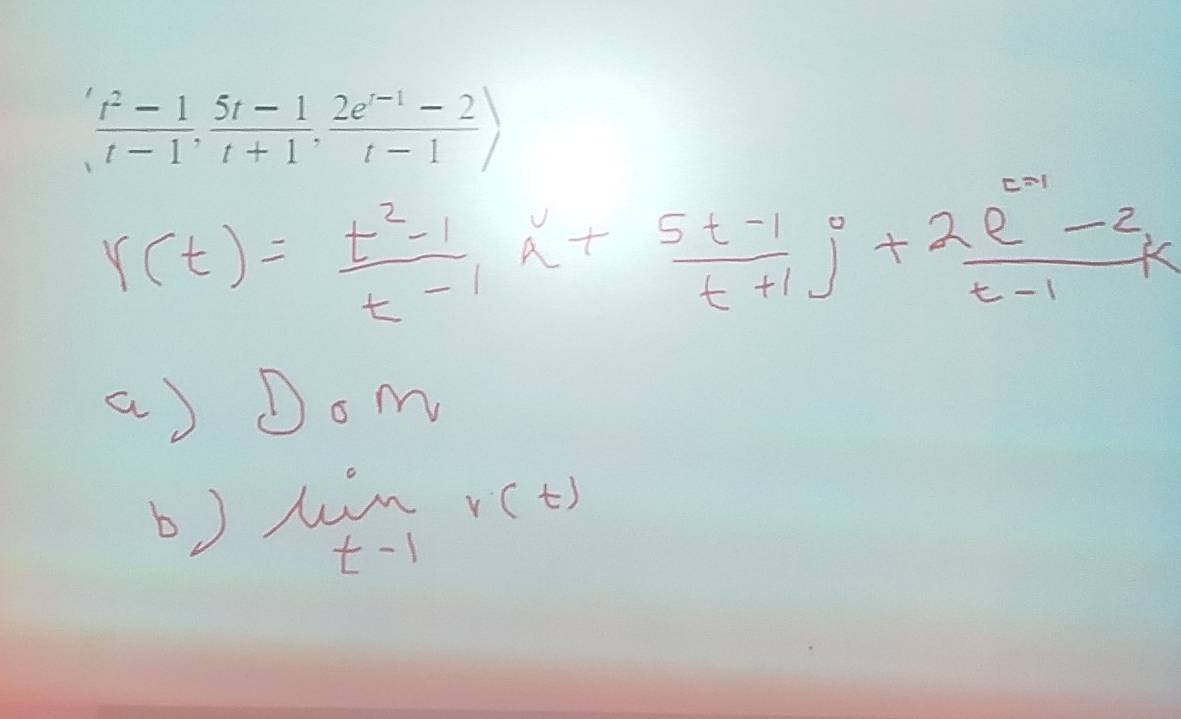 ⟨(t² − 1)/(t − 1), (5t − 1)/(t + 1), (2e^(t−1) − 2)/(t − 1)⟩
r(t) = (t² − 1)/(t − 1) i + (5t − 1)/(t + 1) j + (2e^(t−1) − 2)/(t − 1) k
a) Dom
b) lim t-1 r(t)